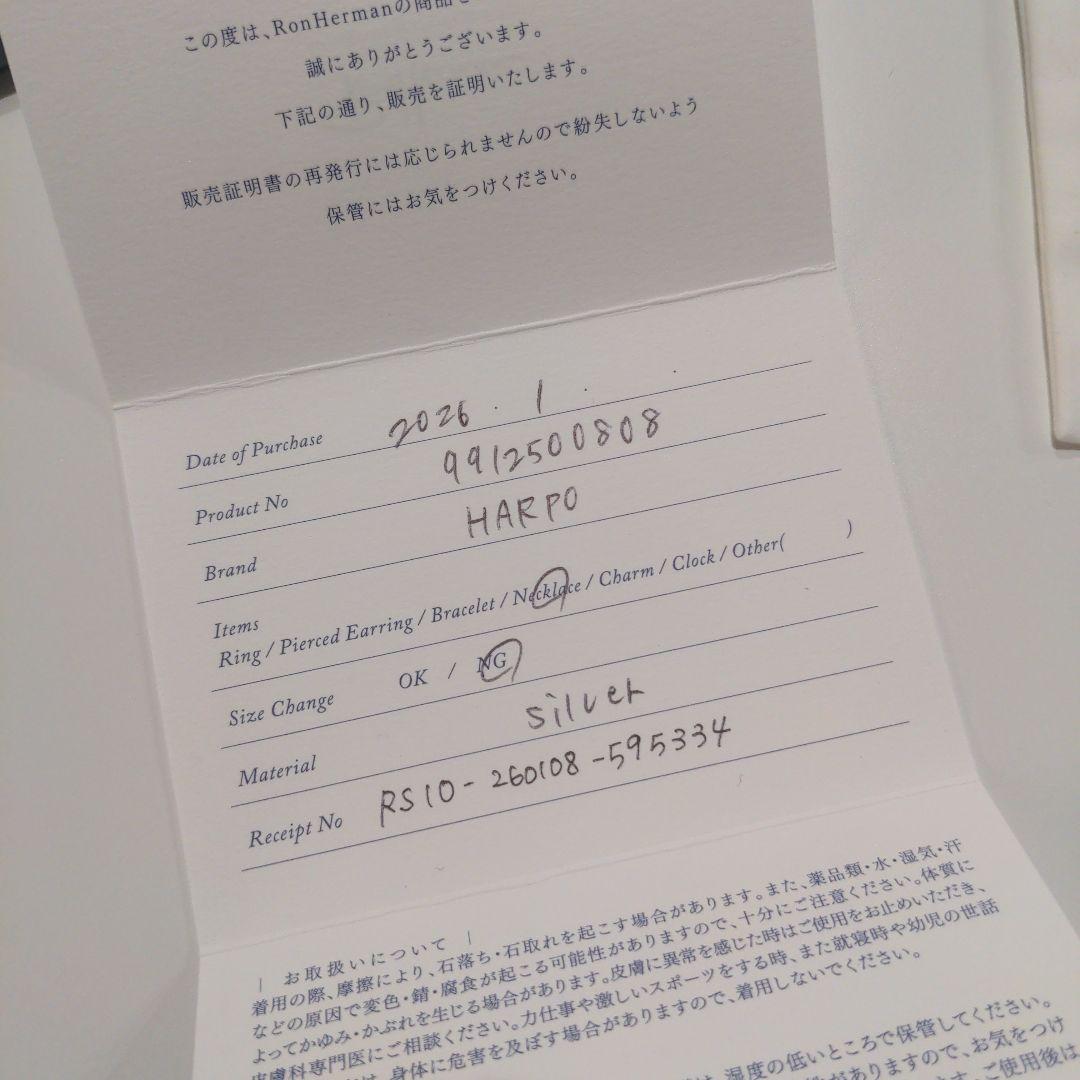 この度は、RonHermanの商品を
誠にありがとうございます。
下記の通り、販売を証明いたします。
販売証明書の再発行には応じられませんので紛失しないよう
保管にはお気をつけください。
Date of Purchase 2026. 1 .
Product No 9912500808
Brand HARPO
Items
Ring / Pierced Earring / Bracelet / Necklace / Charm / Clock / Other( )
Size Change OK / NG
Material silver
Receipt No RS10-260108-595334
| お取扱いについて |
着用の際、摩擦により、石落ち・石取れを起こす場合があります。また、薬品類・水・湿気・汗
などの原因で変色・錆・腐食が起こる可能性がありますので、十分にご注意ください。体質に
よってかゆみ・かぶれを生じる場合があります。皮膚に異常を感じた時はご使用をお止めいただき、
皮膚科専門医にご相談ください。力仕事や激しいスポーツをする時、また就寝時や幼児の世話
は、身体に危害を及ぼす場合がありますので、着用しないでください。
は、湿度の低いところで保管してください。
がありますので、お気をつけ
ご使用後は